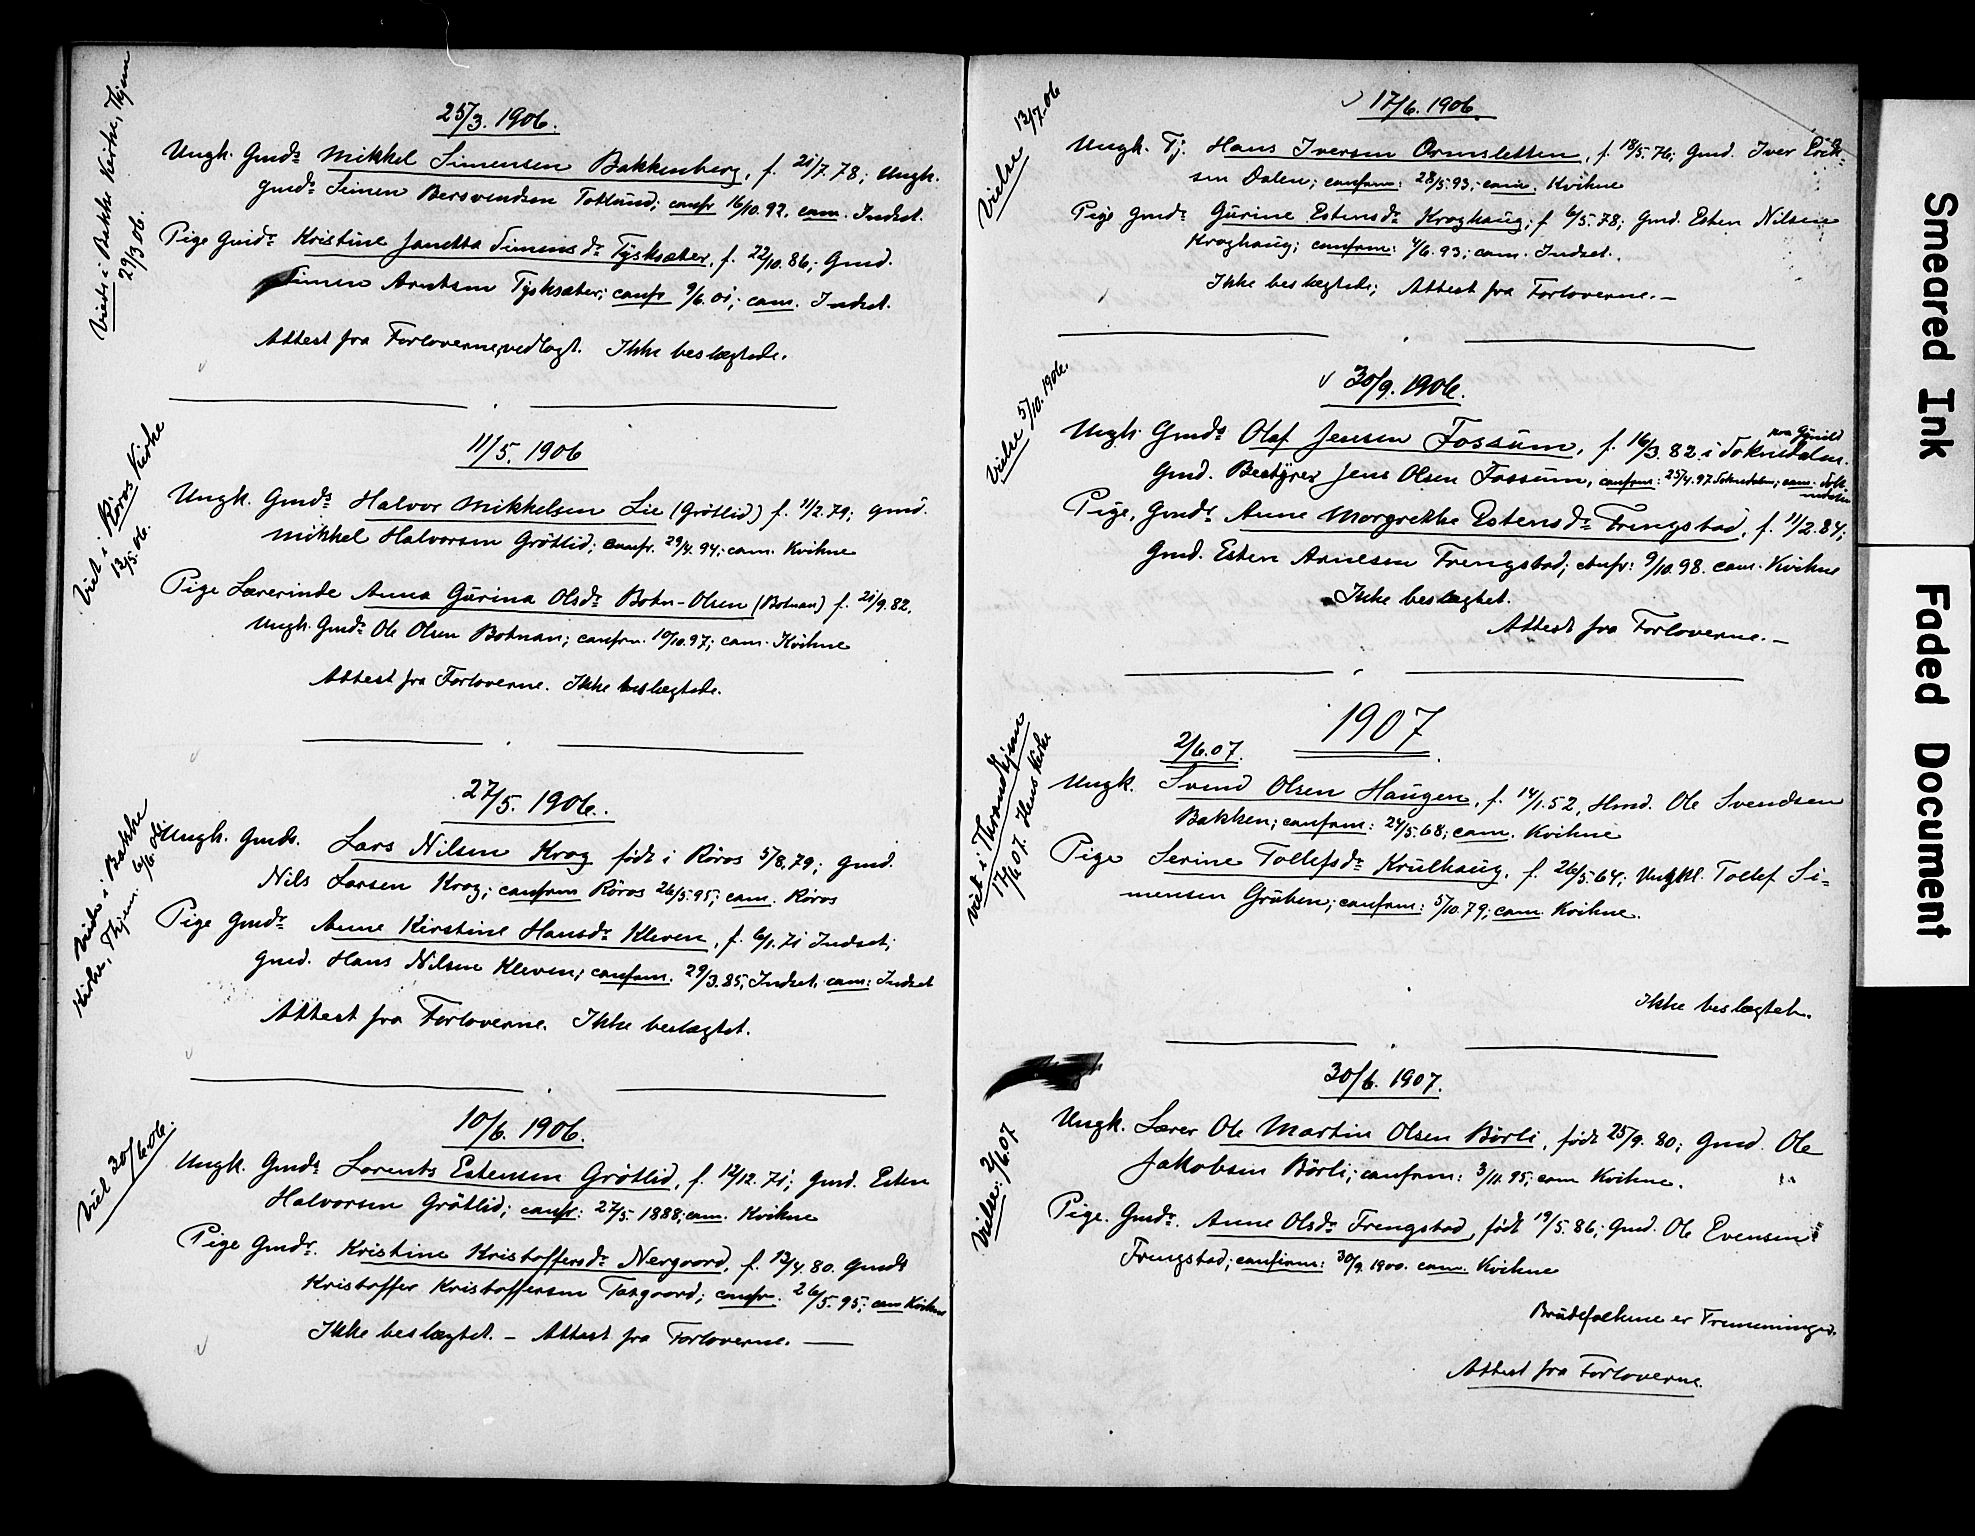 Viede i Bakke Kirke, Thjem
29/3 06.
25/3. 1906.
Ungk. Gmds Mikkel Simensen Bakkenberg, f. 21/7.78; Ungk.
gmds Simen Bersvendsen Totlund; confr 16/10.92. com. Indset.
Pige Gmds Kristine Janetta Simensdr Tysksæter, f. 22/10.86; Gmd.
Simen Arntsen Tysksæter; confr 9/6.01; com. Indset.
Attest fra Forloverne vedlagt. Ikke beslægtede.
Viet i Röros Kirke
12/5.06.
11/5. 1906
Ungk. Gmds Halvor Mikkelsen Lie (Grötlid) f. 11/2.79; gmd.
Mikkel Halvorsen Grötlid; confr. 29/4.94; com. Kvikne
Pige Lærerinde Anna Gurina Olsdr Bohn-Olsen (Botnan) f. 21/9.82.
Ungk. Gmds Ole Olsen Botnan; confrm. 10/10.97; com. Kvikne
Attest fra Forloverne. Ikke beslægtede.
Viede i Bakke
Kirke, Thjem. 6/6.06.
27/5. 1906.
Ungk. Gmds. Lars Nilsen Krog født i Röros 5/8.79; gmd.
Nils Larsen Krog; confrm Röros 26/5.95; com. Röros
Pige Gmds Anne Kirstine Hansdr Kleven, f. 6/1.71 Indset;
gmd. Hans Nilsen Kleven; confrm. 29/3.85, Indset. com: Indset
Attest fra Forloverne. Ikke beslægtet.
Viet 30/6.06.
10/6. 1906.
Ungk. Gmds Lorents Estensen Grötlid, f. 12/12.71; Gmd. Esten
Halvorsen Grötlid; confr: 27/5 1888; com. Kvikne
Pige Gmds. Kristine Kristoffersdr Nergaard, f. 13/4.80. Gmds
Kristoffer Kristoffersen Torgaard; confr. 26/5.95; com Kvikne
Ikke beslægtet. – Attest fra Forloverne. —
Vielse 12/7.06
17/6. 1906.
Ungk. Tj. Hans Iversen Ormsletten, f. 18/5.76; Gmd. Iver Erik-
sen Dalen; confrm: 28/5.93; com. Kvikne
Pige gmds Gurine Estensdr Kroghaug; f 6/5.78; Gmd. Esten Nilsen
Kroghaug; confrm: 4/6.93; com. Indset.
Ikke beslægtede; Attest fra Forloverne. –
Vielse 5/10.1906.
30/9. 1906.
Ungk. Gmds Olaf Jensen Fossum, f. 16/3.82 i Soknedalen.
Gmd. Bestyrer Jens Olsen Fossum, confrm: 25/4.97 Soknedalen; com:
Pige, Gmds Anne Margrethe Estensdr Frengstad, f. 11/2.84;
Gmd. Esten Arnesen Frengstad; confr: 9/10.98. com. Kvikne
Ikke beslægtet.
Attest fra Forloverne. –
Viet i Throndhjem
17/6 07. Kirke
1907
2/6.07.
Ungk. Svend Olsen Haugen, f. 14/1.52, Hmd. Ole Svendsen
Bakken; confrm: 24/5.68; com. Kvikne
Pige Serine Tollefsdr Krulhaug, f. 26/5.64; Ungkl. Tollef Si=
mensen Gruben; confrm: 5/10.79; com. Kvikne.
Ikke beslægtet.
Vielse: 2/6.07
30/6. 1907.
Ungk. Lærer Ole Martin Olsen Börli, født 25/9. 80; Gmd. Ole
Jakobsen Börli; confrm: 3/11.95; com Kvikne.
Pige. Gmds. Anne Olsdr Frengstad, født 19/5.86; Gmd. Ole Evensen
Frengstad; confirm: 30/9. 1900. com. Kvikne
Brudefolkene er Tremenninger.
Attest fra Forloverne.
Smeared Ink
Faded Document